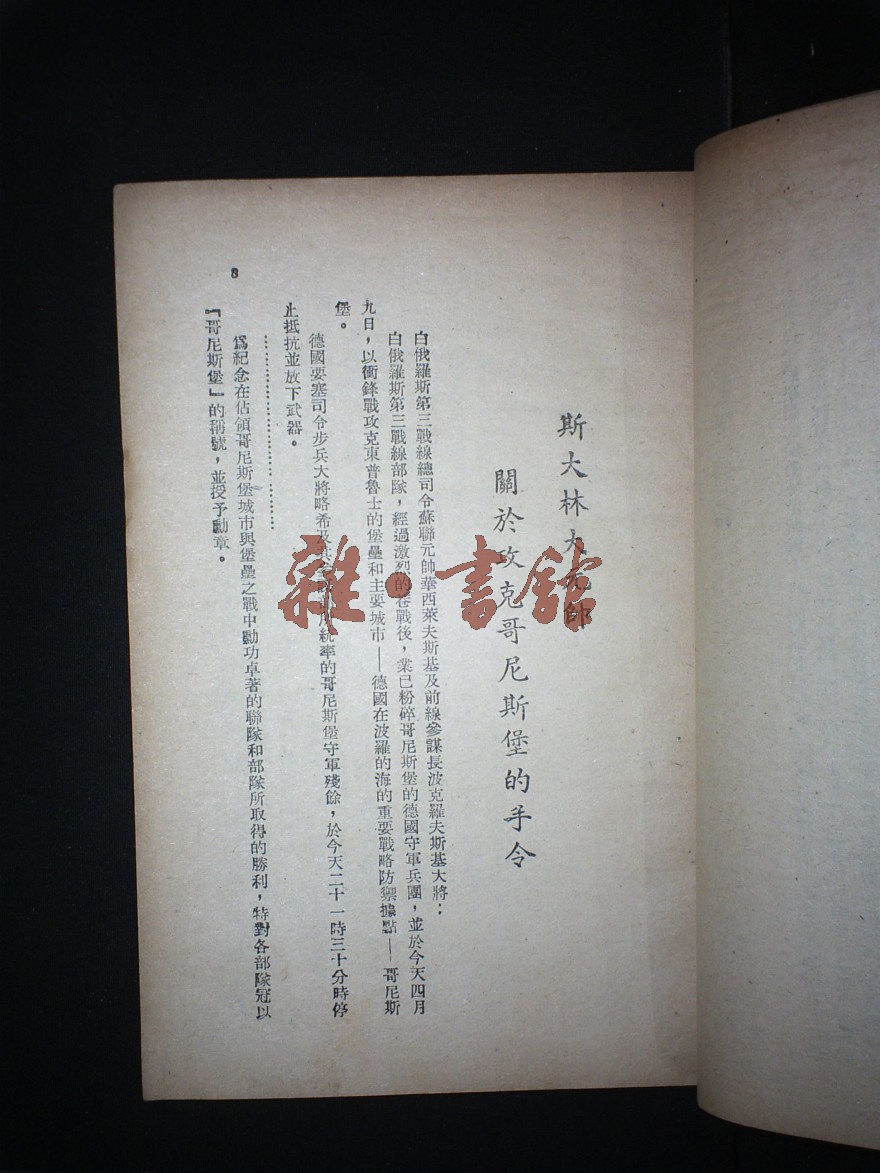 斯大林大元帥
關於攻克哥尼斯堡的手令
白俄羅斯第三戰線總司令蘇聯元帥華西萊夫斯基及前線參謀長波克羅夫斯基大將：
白俄羅斯第三戰線部隊，經過激烈的巷戰後，業已粉碎哥尼斯堡的德國守軍兵團，並於今天四月
九日，以衝鋒戰攻克東普魯士的堡壘和主要城市——德國在波羅的海的重要戰略防禦據點——哥尼斯
堡。
德國要塞司令步兵大將略希及其 所統率的哥尼斯堡守軍殘餘，於今天二十一時三十分時停
止抵抗並放下武器。
……………………………
爲紀念在佔領哥尼斯堡城市與堡壘之戰中勳功卓著的聯隊和部隊所取得的勝利，特對各部隊冠以
『哥尼斯堡』的稱號，並授予勳章。
8
雜·書舘